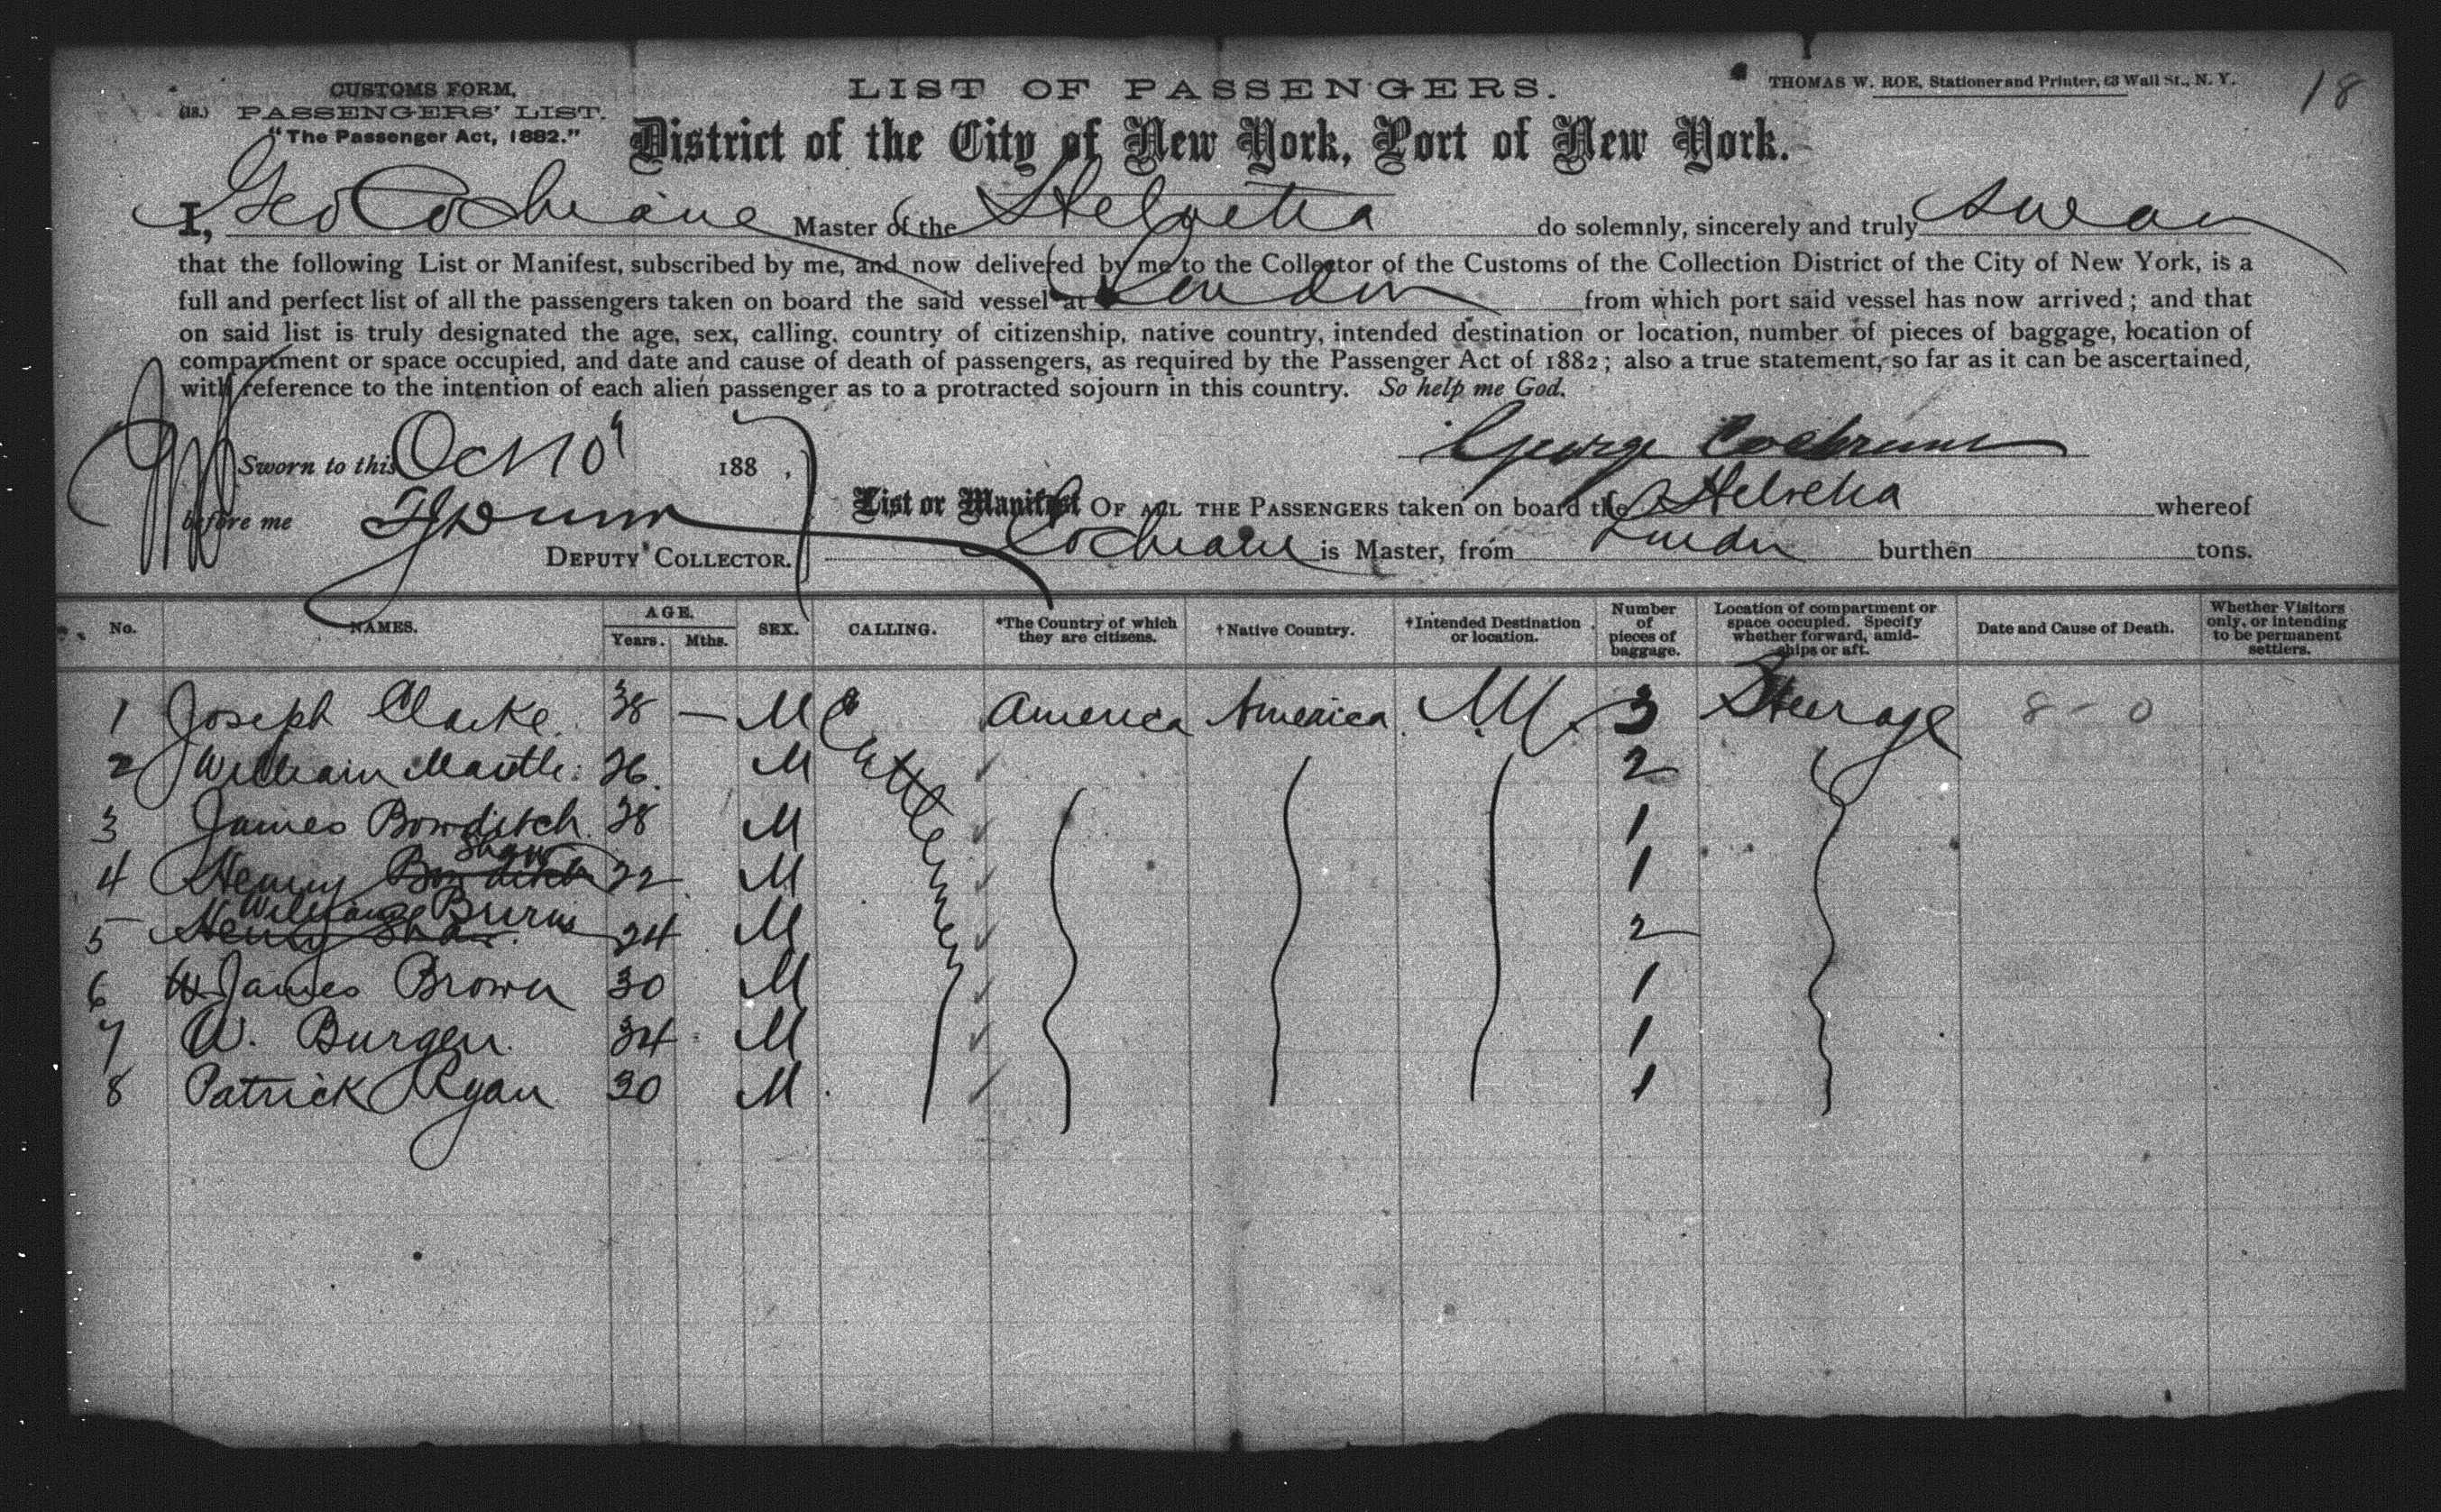 CUSTOMS FORM,
(18.) PASSENGERS' LIST.
"The Passenger Act, 1882."
LIST OF PASSENGERS.
THOMAS W. ROE, Stationer and Printer, 63 Wall St., N. Y.
18
District of the City of New York, Port of New York.
I, Geo Cochrane Master of the Helvetia do solemnly, sincerely and truly swear
that the following List or Manifest, subscribed by me, and now delivered by me to the Collector of the Customs of the Collection District of the City of New York, is a
full and perfect list of all the passengers taken on board the said vessel at London from which port said vessel has now arrived; and that
on said list is truly designated the age, sex, calling, country of citizenship, native country, intended destination or location, number of pieces of baggage, location of
compartment or space occupied, and date and cause of death of passengers, as required by the Passenger Act of 1882; also a true statement, so far as it can be ascertained,
with reference to the intention of each alien passenger as to a protracted sojourn in this country. So help me God.
George Cochrane
Sworn to this Oct 10 188 ,
before me
DEPUTY COLLECTOR.
List or Manifest OF ALL THE PASSENGERS taken on board the Helvetia whereof
Cochrane is Master, from London burthen tons.
No. NAMES. AGE. Years. Mths. SEX. CALLING. *The Country of which they are citizens. †Native Country. †Intended Destination or location. Number of pieces of baggage. Location of compartment or space occupied. Specify whether forward, amidships or aft. Date and Cause of Death. Whether Visitors only, or intending to be permanent settlers.
1 Joseph Clarke. 38 — M Cattlemen America America 3 Steerage 8 - 0
2 William 26. M 2
3 James Bowditch. 28 M 1
4 Henry Bowditch Shaw 22 M 1
5 Henry Shaw William Burns 24 M 2
6 James Brown 30 M 1
7 W. Burgen. 34 M 1
8 Patrick Ryan 30 M. 1